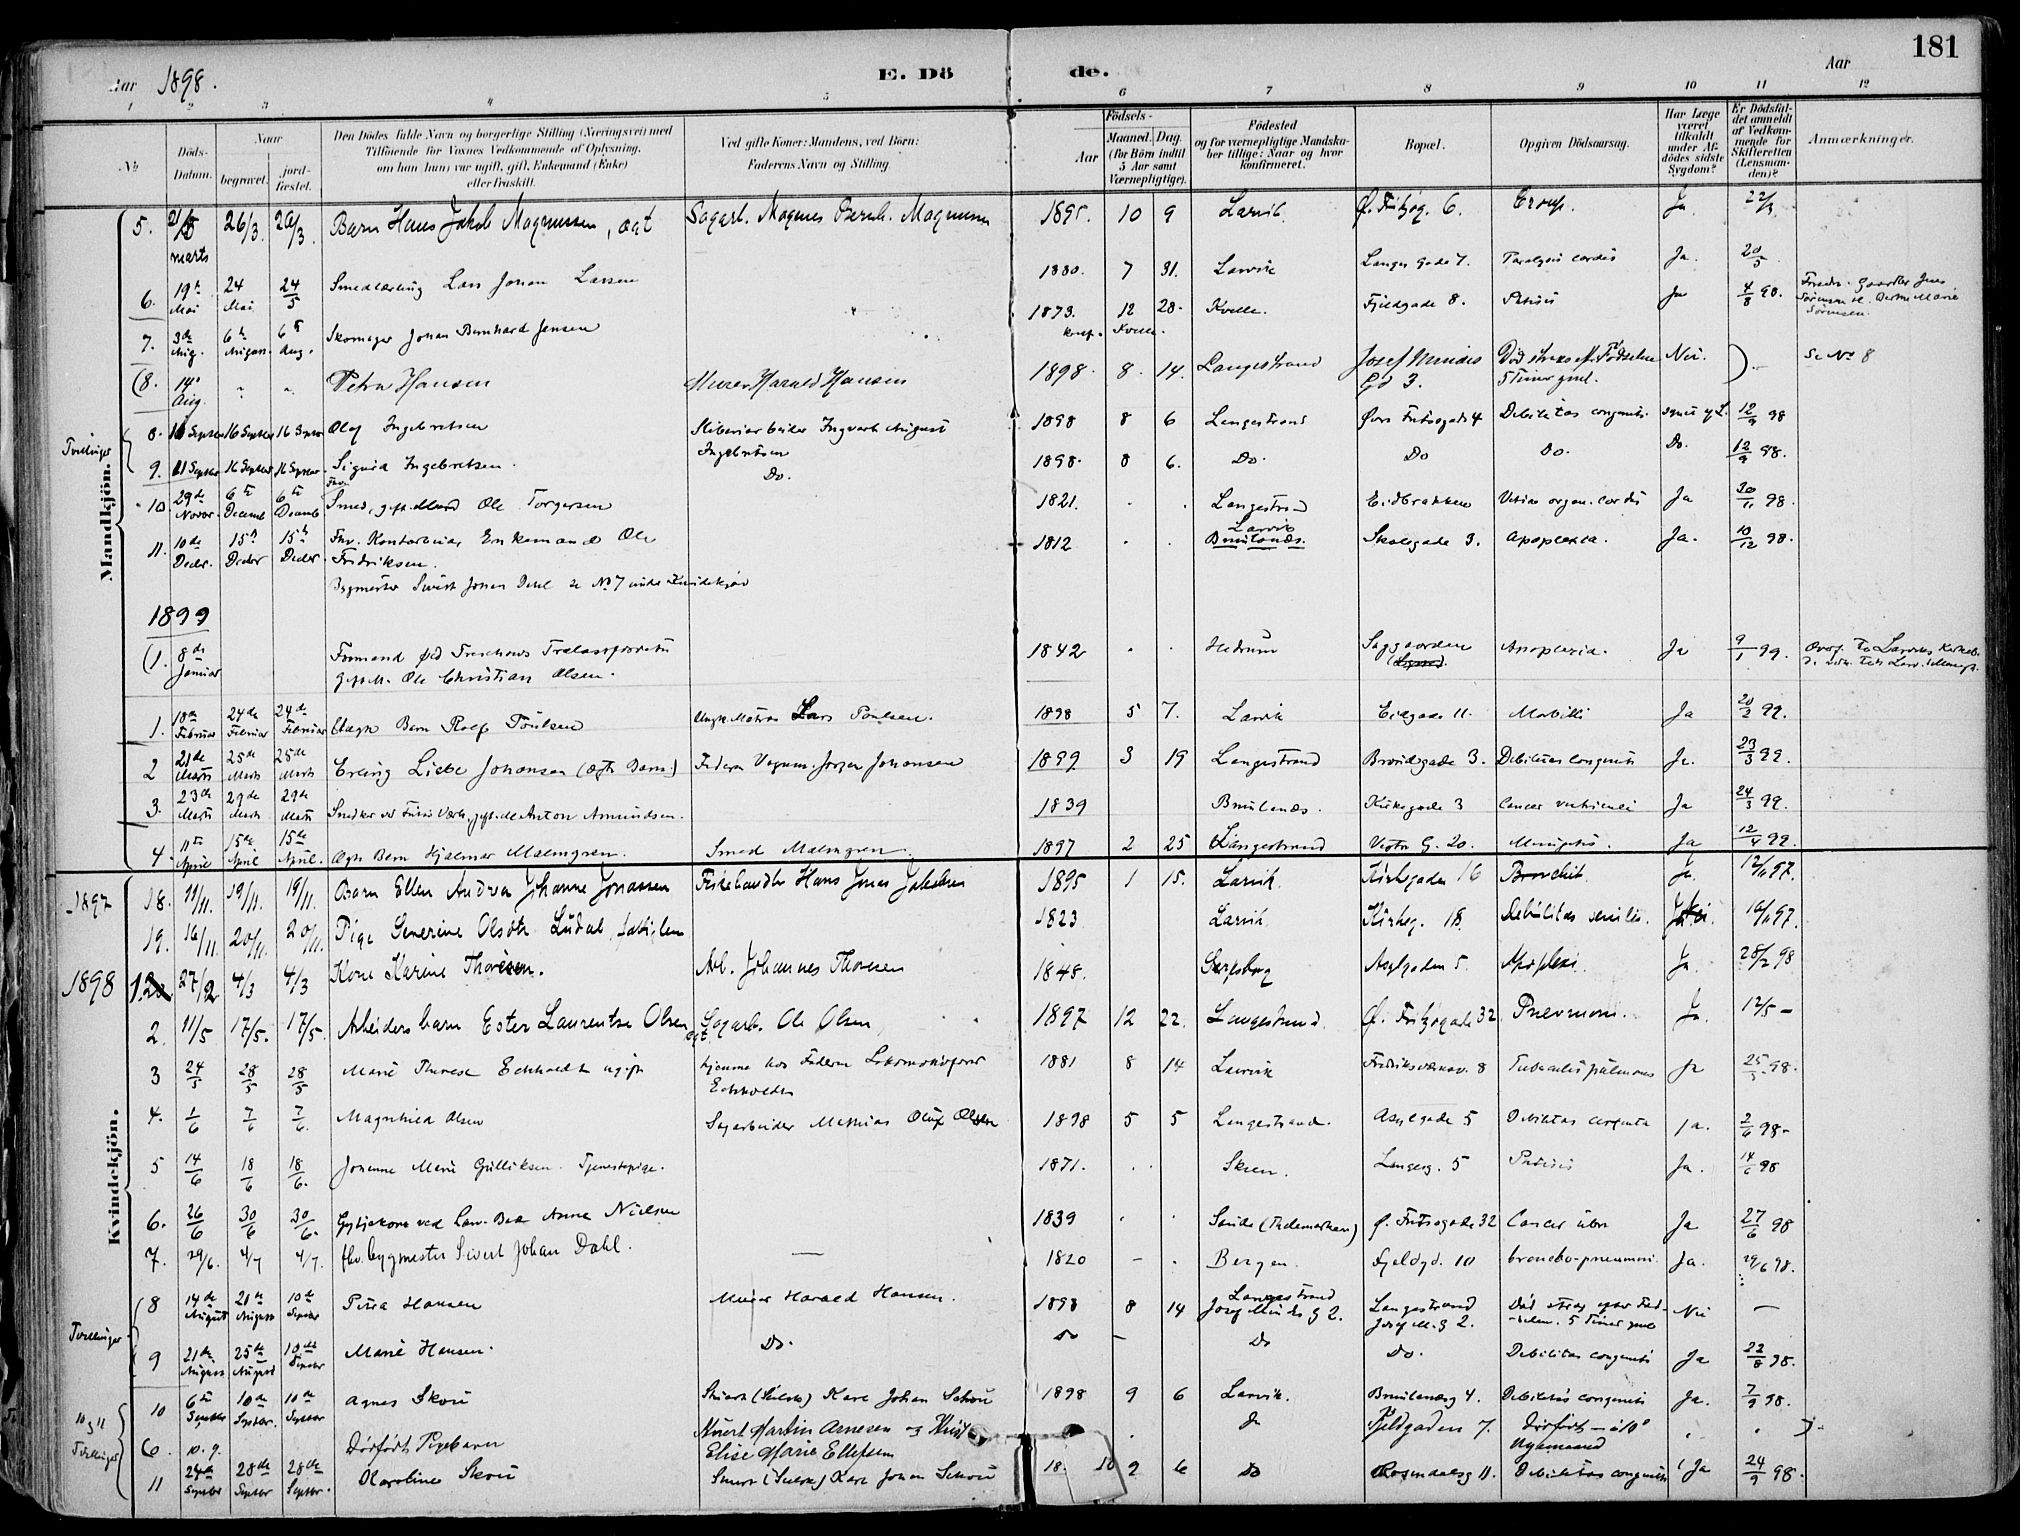 Aar 1898. E. Döde. Aar 181
1 2 3 4 5 6 7 8 9 10 11 12
No. Döds-Datum. Naar begravet. jordfæstet. Den Dödes fulde Navn og borgerlige Stilling (Næringsvei) med Tilföiende for Voxnes Vedkommende af Oplysning, om han (hun) var ugift, gift, Enkemand (Enke) eller fraskilt. Ved gifte Koner: Mandens, ved Börn: Faderens Navn og Stilling. Födsels- Aar Maaned. Dag. (for Börn indtil 5 Aar samt Værnepligtige). Födested og for værnepligtige Mandskaber tillige: Naar og hvor konfirmeret. Bopæl. Opgiven Dödsaarsag. Har Læge været tilkaldt under Afdödes sidste Sygdom? Er Dödsfaldet anmeldt af Vedkommende for Skifteretten (Lensmanden)? Anmærkninger.
Mandkjön.
5. 21/3 marts 26/3. 26/3. Barn Hans Jakob Magnussen, ægt Sagarb. Magnus Bernh. Magnussen 1895. 10 9 Larvik. Ø. Fritzøg. 6. Croup. Ja 22/3
6. 19de Mai 24 Mai 24/5 Smedlærling Lars Johan Larsen 1880. 7 31. Larvik Langes Gade 7. Paralysis cordis Ja. 20/5
7. 3de Aug. 6te August 6te Aug. Skomager Johan Bernhard Jensen 1873. 12 28. Kvelle. Fjeldgade 8. Phtisis Ja 4/8 98.
konf. Kvelle.
(8. 14de Aug. " " Petra Hansen Murer Harald Hansen 1898. 8. 14. Langestrand Josef Mindes Gd 3. Död straks eft. Födselen 5 Timer gml. Nei. ) Se No 8
Tvillinger
8. 11 Septbr 16 Septbr 16 Septbr Olaf Ingebretsen Sliberiarbeider Ingvart August Ingebretsen 1898 8 6 Langestrand Øvre Fritzøgade 4 Debilitas congenita 12/9 98
9. 11 Septbr 16 Septbr 16 Septbr Sigurd Ingebretsen. Do. 1898. 8 6. Do. Do Do. Do. 12/9 98.
10. 29de Novbr. 6te Decemb 6te Decemb Fhv. Smed, gift Mand Ole Torgersen 1821. . . Langestrand Eidbrakken Vitium organ. cordis Ja 30/11 98.
11. 10de Decbr. 15de Decbr 15de Decbr. Fhv. Kontorbud Enkemand Ole Fridriksen. 1812 . . Larvik Brunlanes. Skolegade 3. Apoplexia. Ja. 10/12 98.
Bygmester Sivert Johan Dahl se No 7 under Kvindekjøn
1899
(1. 8de Januar Formand ved Treschows Trælastforretn. gift M. Ole Christian Olsen. 1842 . . Hedrum Saggaarden Apoplexia. Ja 9/1 99.
1. 18de Februar 24de Februar 24de Februar Uægte Barn Rolf Poulsen Ungk. Matros Lars Poulsen. 1898 5 7. Larvik Eikegade 11. Morbilli Ja 20/2 99.
2 21de Marts 25de Marts 25de Marts Erling Johansen (ægte Barn) Faderen Jørgen Johansen 1899 3 19 Langestrand 3. Debilitas congenita Ja. 23/3 99.
3. 23de Marts 29de Marts 29de Marts Snedker ved Fritzø Værk, gift M. Anton Amundsen. 1839 Brunlanes. Kirkegade 3 Cancer ventriculi Ja 24/3 99.
4. 11te April 15de April 15de April. Ægte Barn Hjalmar Malmgren. Smed Malmgren. 1897 2 25 Langestrand Vestre G. 20. Meningitis. Ja 12/4 99.
Kvindekjön.
1897 18. 11/11. 19/11. 19/11. Barn Ellen Andrea Johanne Jonassen Fiskehandler Hans Jonas Jakobsen 1895 1 15. Larvik. Kirkegaden 16 Bronchit. Ja. 12/11 97.
19. 16/11 20/11. 20/11. Pige Severine Olsdtr. Lüdal, fattiglem 1823 Larvik Kirkeg. 18. Debilitas senilis. 16/11 97.
1898 1. 27/2 4/3 4/3 Kone Karine Thoresen. Arb. Johannes Thoresen 1848. Sarpsborg Asylgaden 5. Apoplexi. Ja. 28/2 98
2. 11/5 17/5. 17/5. Arbeidersbarn Ester Laurentse Olsen ægt Sagarb. Ole Olsen 1897 12 22. Langestrand. Ø. Fritzøgade 32 Pneumoni. Ja. 12/5 –
3 24/5 28/5 28/5 Marie Therese Echholdt ugift hjemme hos Faderen Lokomotivfører Echholdt 1881 8 14 Larvik Fredriksværnsv. 8 Tuberculosis pulmones Ja 25/5 98.
4. 1/6 7/6 7/6. Magnhild Olsen Sagarbeider Mathias Oluf Olsen 1898 5 5 Langestrand. Asylgade 5 Debilitas congenita ja. 2/6 98.
5 14/6 18/6 18/6. Johanne Marie Gulliksen. Tjenestepige. 1871. . . Skien. Langesg. 5 Phtisis Ja. 14/6 98
6. 26/6 30/6 30/6. Anne Nielsen 1839 . . Saude (Thelemarken) Ø. Fritzøgade 32 Cancer uteri Ja 27/6 98
7. 29/6. 4/7 4/7. fhv. bygmester Sivert Johan Dahl. — 1820 – . Bergen. Fjeldgd. 10 broncho-pneumoni. Ja. 29/6 98.
Tvillinger
(8 14de August 21de August 10de Septbr Petra Hansen Murer Harald Hansen. 1898 8 14 Langestrand Josef Mindes g 2. Langestrand Josef M. g 2. Död strax efter Fødselen. 5 Timer gml Nei —
9 21de August 25de August 10de Septbr Marie Hansen. Do. Do – Do Do. Debilitas congenita Ja 22/8 98.
10 og 11 Tvillinger
10 6te Septbr 10de Septbr. 10de Septbr Agnes Skou Karl Johan Schou 1898 9 6 Larvik. Brunlanesg 4. Debilitas congenita Ja. 7/9 98.
6. 10. 9. Dødfødt Pigebarn Murer Martin Arnesen og Hustru Elise Marie Ellefsen . Do Fjeldgaden 7. Dødfødt . .
11 24de Septbr 28de Septbr 28de Septbr. Karoline Skou Karl Johan Schou 18. 9 6 Do Rosendalsg 11. Debilitas congenita Ja 24/9 98.